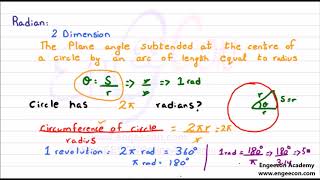 Radian:
2 Dimension
The Plane angle subtended at the centre of
a circle by an arc of length equal to radius
θ = S/r ⇒ r/r ⇒ 1 rad
r θ r S=r
Circle has 2π radians?
circumference of circle / radius = 2πr/r = 2π
1 revolution = 2π rad = 360°
π rad = 180°
1 rad = 180°/π ⇒ 180°/3.14 ⇒
Engeecon Academy
www.engeecon.com